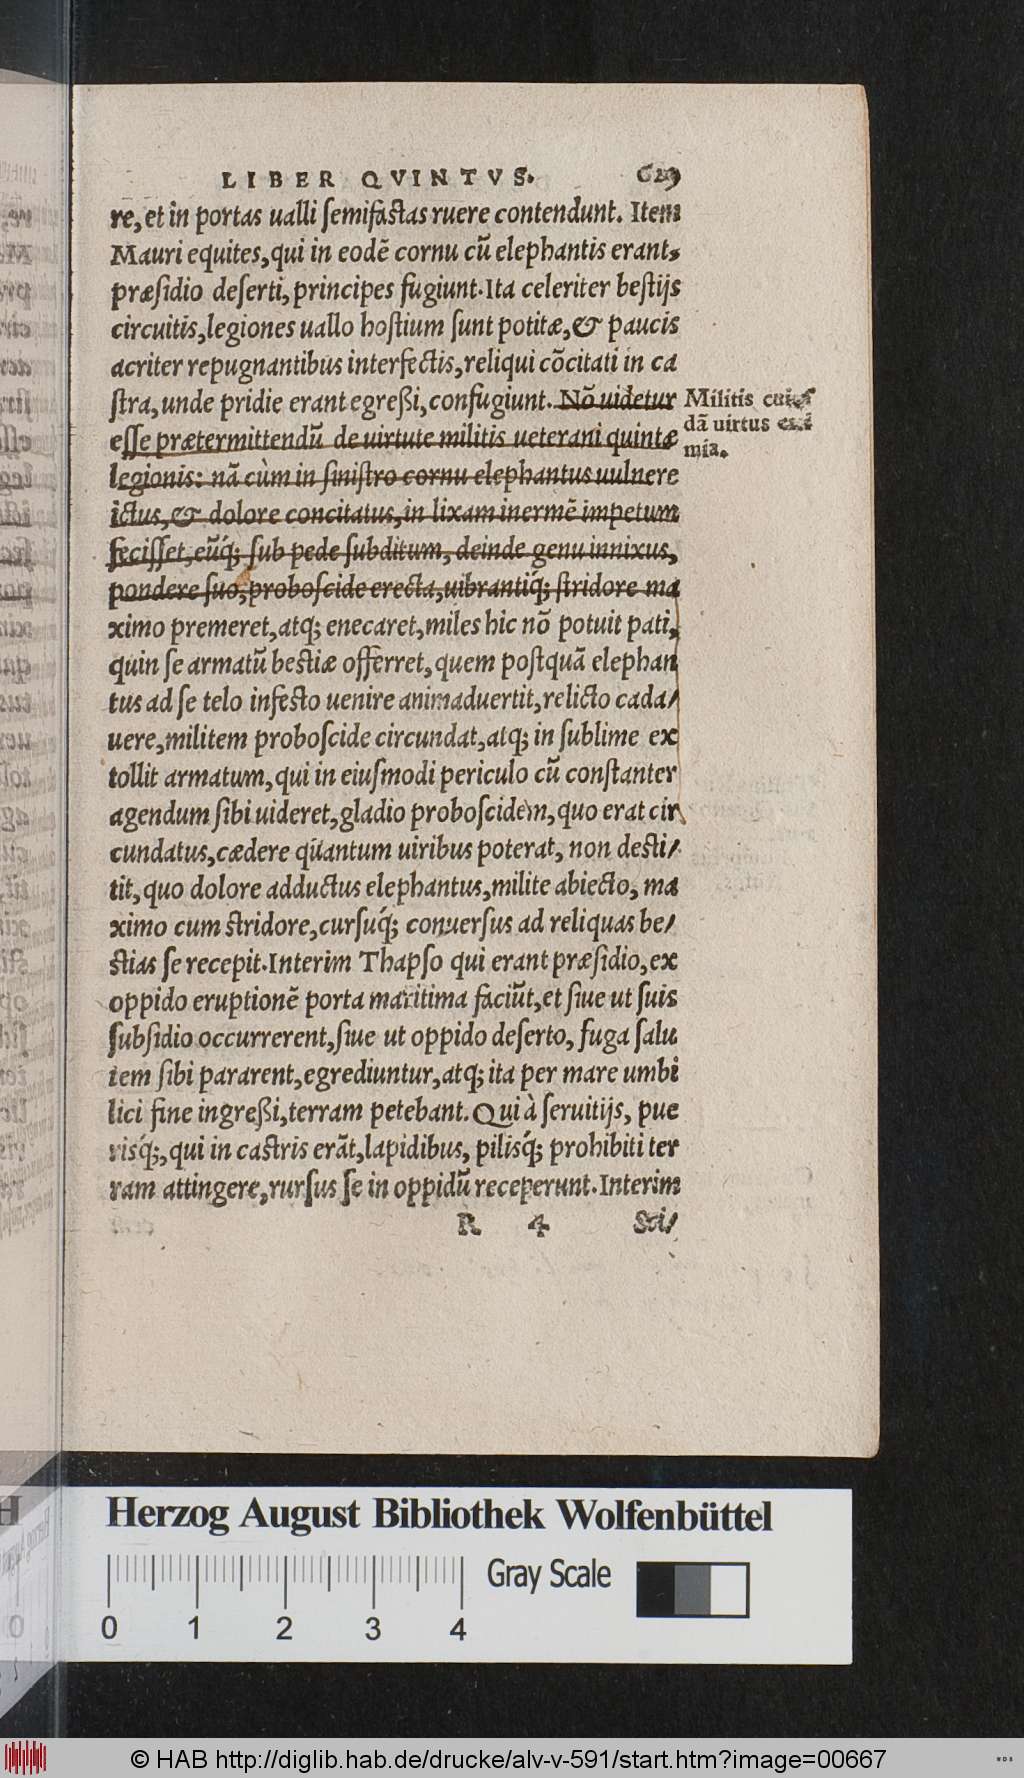 LIBER QVINTVS. 629
re, et in portas ualli ſemifactas ruere contendunt. Item
Mauri equites, qui in eodē cornu cū elephantis erant,
præſidio deſerti, principes fugiunt. Ita celeriter beſtijs
circuitis, legiones uallo hoſtium ſunt potitæ, & paucis
acriter repugnantibus interfectis, reliqui cōcitati in ca
ſtra, unde pridie erant egreßi, confugiunt. Nō uidetur
eſſe prætermittendū de uirtute militis ueterani quintæ
legionis: nā cùm in ſiniſtro cornu elephantus uulnere
ictus, & dolore concitatus, in lixam inermē impetum
feciſſet, eūq́; ſub pede ſubditum, deinde genu innixus,
pondere ſuo, proboſcide erecta, uibrantiq́; ſtridore ma
ximo premeret, atq; enecaret, miles hic nō potuit pati,
quin ſe armatū beſtiæ offerret, quem poſtquā elephan
tus ad ſe telo infeſto uenire animaduertit, relicto cada/
uere, militem proboſcide circundat, atq; in ſublime ex
tollit armatum, qui in eiuſmodi periculo cū conſtanter
agendum ſibi uideret, gladio proboſcidem, quo erat cir
cundatus, cædere quantum uiribus poterat, non deſti/
tit, quo dolore adductus elephantus, milite abiecto, ma
ximo cum ſtridore, curſuq́; conuerſus ad reliquas be/
ſtias ſe recepit. Interim Thapſo qui erant præſidio, ex
oppido eruptionē porta maritima faciūt, et ſiue ut ſuis
ſubſidio occurrerent, ſiue ut oppido deſerto, fuga ſalu
tem ſibi pararent, egrediuntur, atq; ita per mare umbi
lici fine ingreßi, terram petebant. Qui à ſeruitijs, pue
risq́;, qui in caſtris erāt, lapidibus, pilisq́; prohibiti ter
ram attingere, rurſus ſe in oppidū receperunt. Interim
R 4 Sci/
Militis cuiuſ
dā uirtus exi
mia.
Herzog August Bibliothek Wolfenbüttel
Gray Scale
0 1 2 3 4
© HAB http://diglib.hab.de/drucke/alv-v-591/start.htm?image=00667